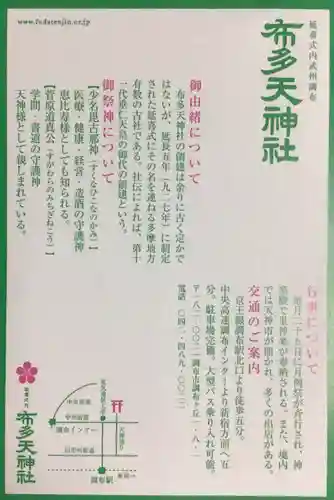 www.fudatenjin.or.jp
延喜式内武州調布
布多天神社
御由緒について
布多天神社の創建は余りに古く定かで
はないが、延長五年(九二七年)に制定
された延喜式にその名を連ねる多摩地方
有数の古社である。社伝によれば、第十
一代垂仁天皇の御代の創建という。
御祭神について
【少名毘古那神(すくなひこなのかみ)】
医療・健康・経営・造酒の守護神
恵比寿様としても知られる。
【菅原道真公(すがわらのみちざねこう)】
学問・書道の守護神
天神様として親しまれている。
行事について
毎月二十五日に月例祭が斎行され、神
楽殿で里神楽が奉納される。また、境内
では天神市が開かれ、多くの出店がある。
交通のご案内
京王線調布駅北口より徒歩五分。
中央高速調布インターより新宿方面へ五
分。駐車場完備。大型バス乗り入れ可能。
〒一八二-〇〇二二 調布市調布ケ丘一-八-一
電話 〇四二-四八九-〇〇二二
布多天神社
中央高速
甲州街道
調布インター
旧甲州街道
天神通り
調布駅